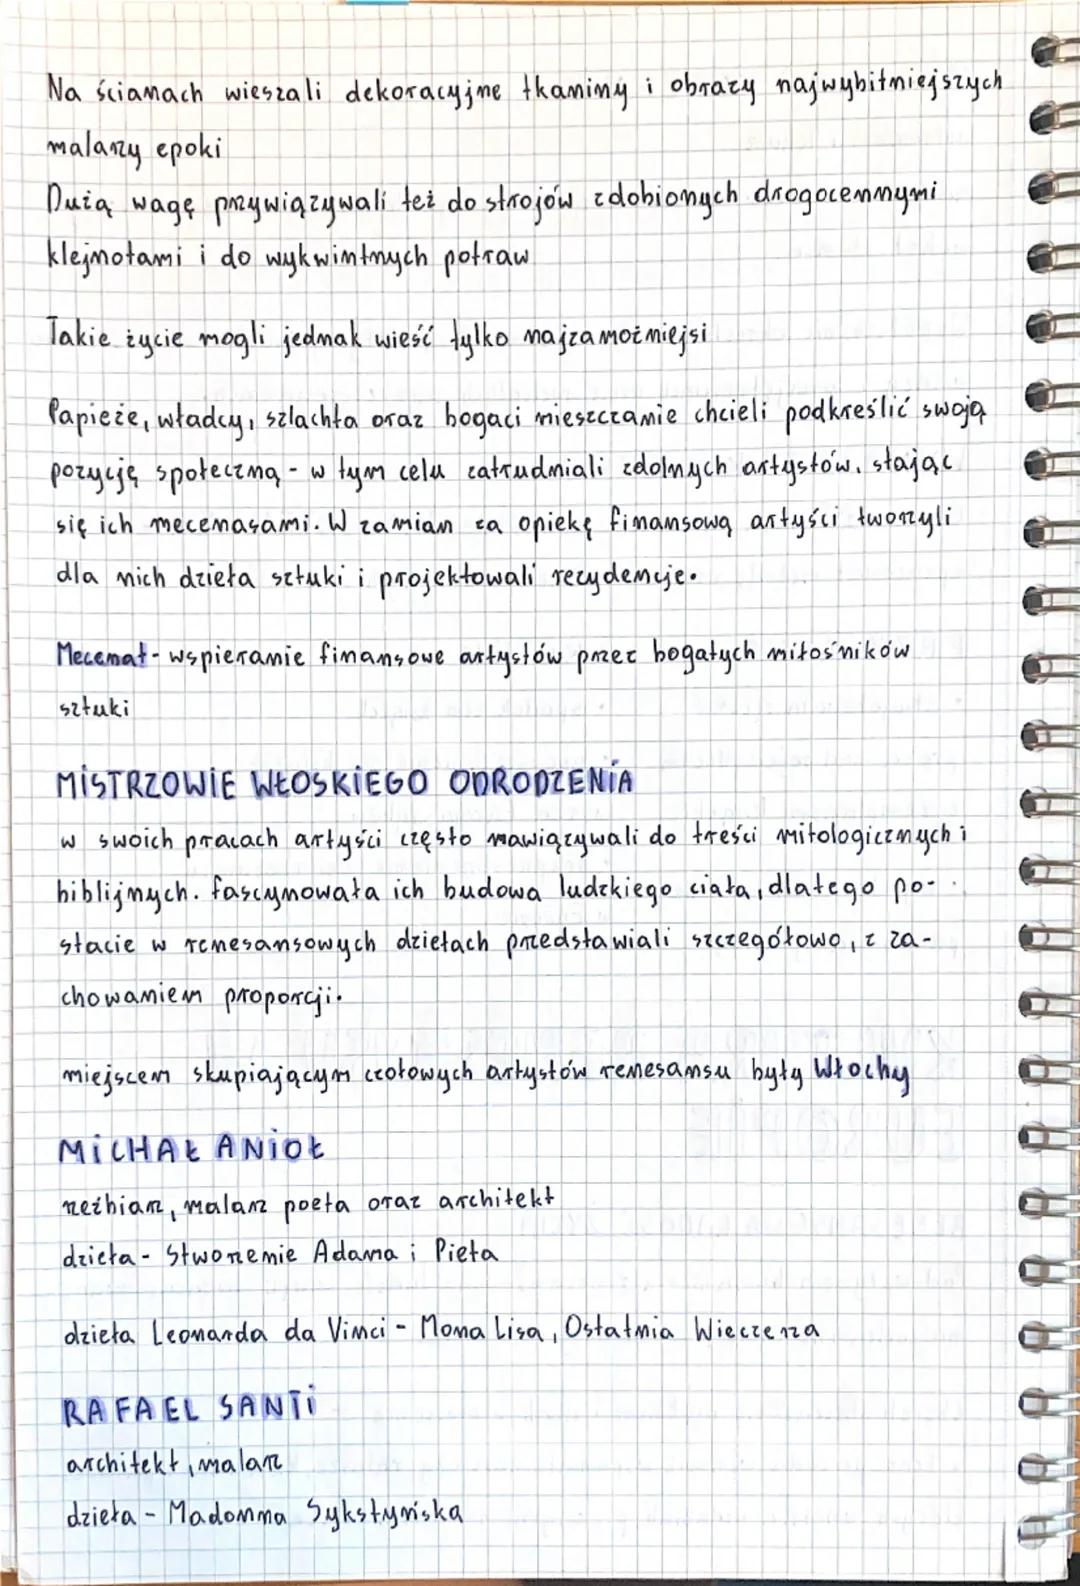 Na ścianach wieszali dekoracyjne tkaniny i obrazy najwybitniejszych
malarzy epoki
Dużą wagę przywiązywali też do strojów zdobionych drogocennymi
klejnotami i do wykwintnych potraw
Takie życie mogli jednak wieść tylko najzamożniejsi
Papieże, władcy, szlachta oraz bogaci mieszczanie chcieli podkreślić swoją
pozycję społeczną - w tym celu zatrudniali zdolnych artystów, stając
się ich mecenasami. W zamian za opiekę finansową artyści tworzyli
dla nich dzieła sztuki i projektowali rezydencje.
Mecenat - wspieranie finansowe artystów przez bogatych miłośników
sztuki
MISTRZOWIE WŁOSKIEGO ODRODZENIA
w swoich pracach artyści często nawiązywali do treści mitologicznych i
biblijnych. fascynowała ich budowa ludzkiego ciała, dlatego po-
stacie w renesansowych dziełach przedstawiali szczegółowo, z za-
chowaniem proporcji.
miejscem skupiającym czołowych artystów renesansu były Włochy
MICHAŁ ANIOŁ
rzeźbiarz, malarz poeta oraz architekt
dzieła - Stworzenie Adama i Pieta
dzieła Leonarda da Vinci - Mona Lisa, Ostatnia Wieczerza
RAFAEL SANTI
architekt, malarz
dzieła - Madonna Sykstyńska